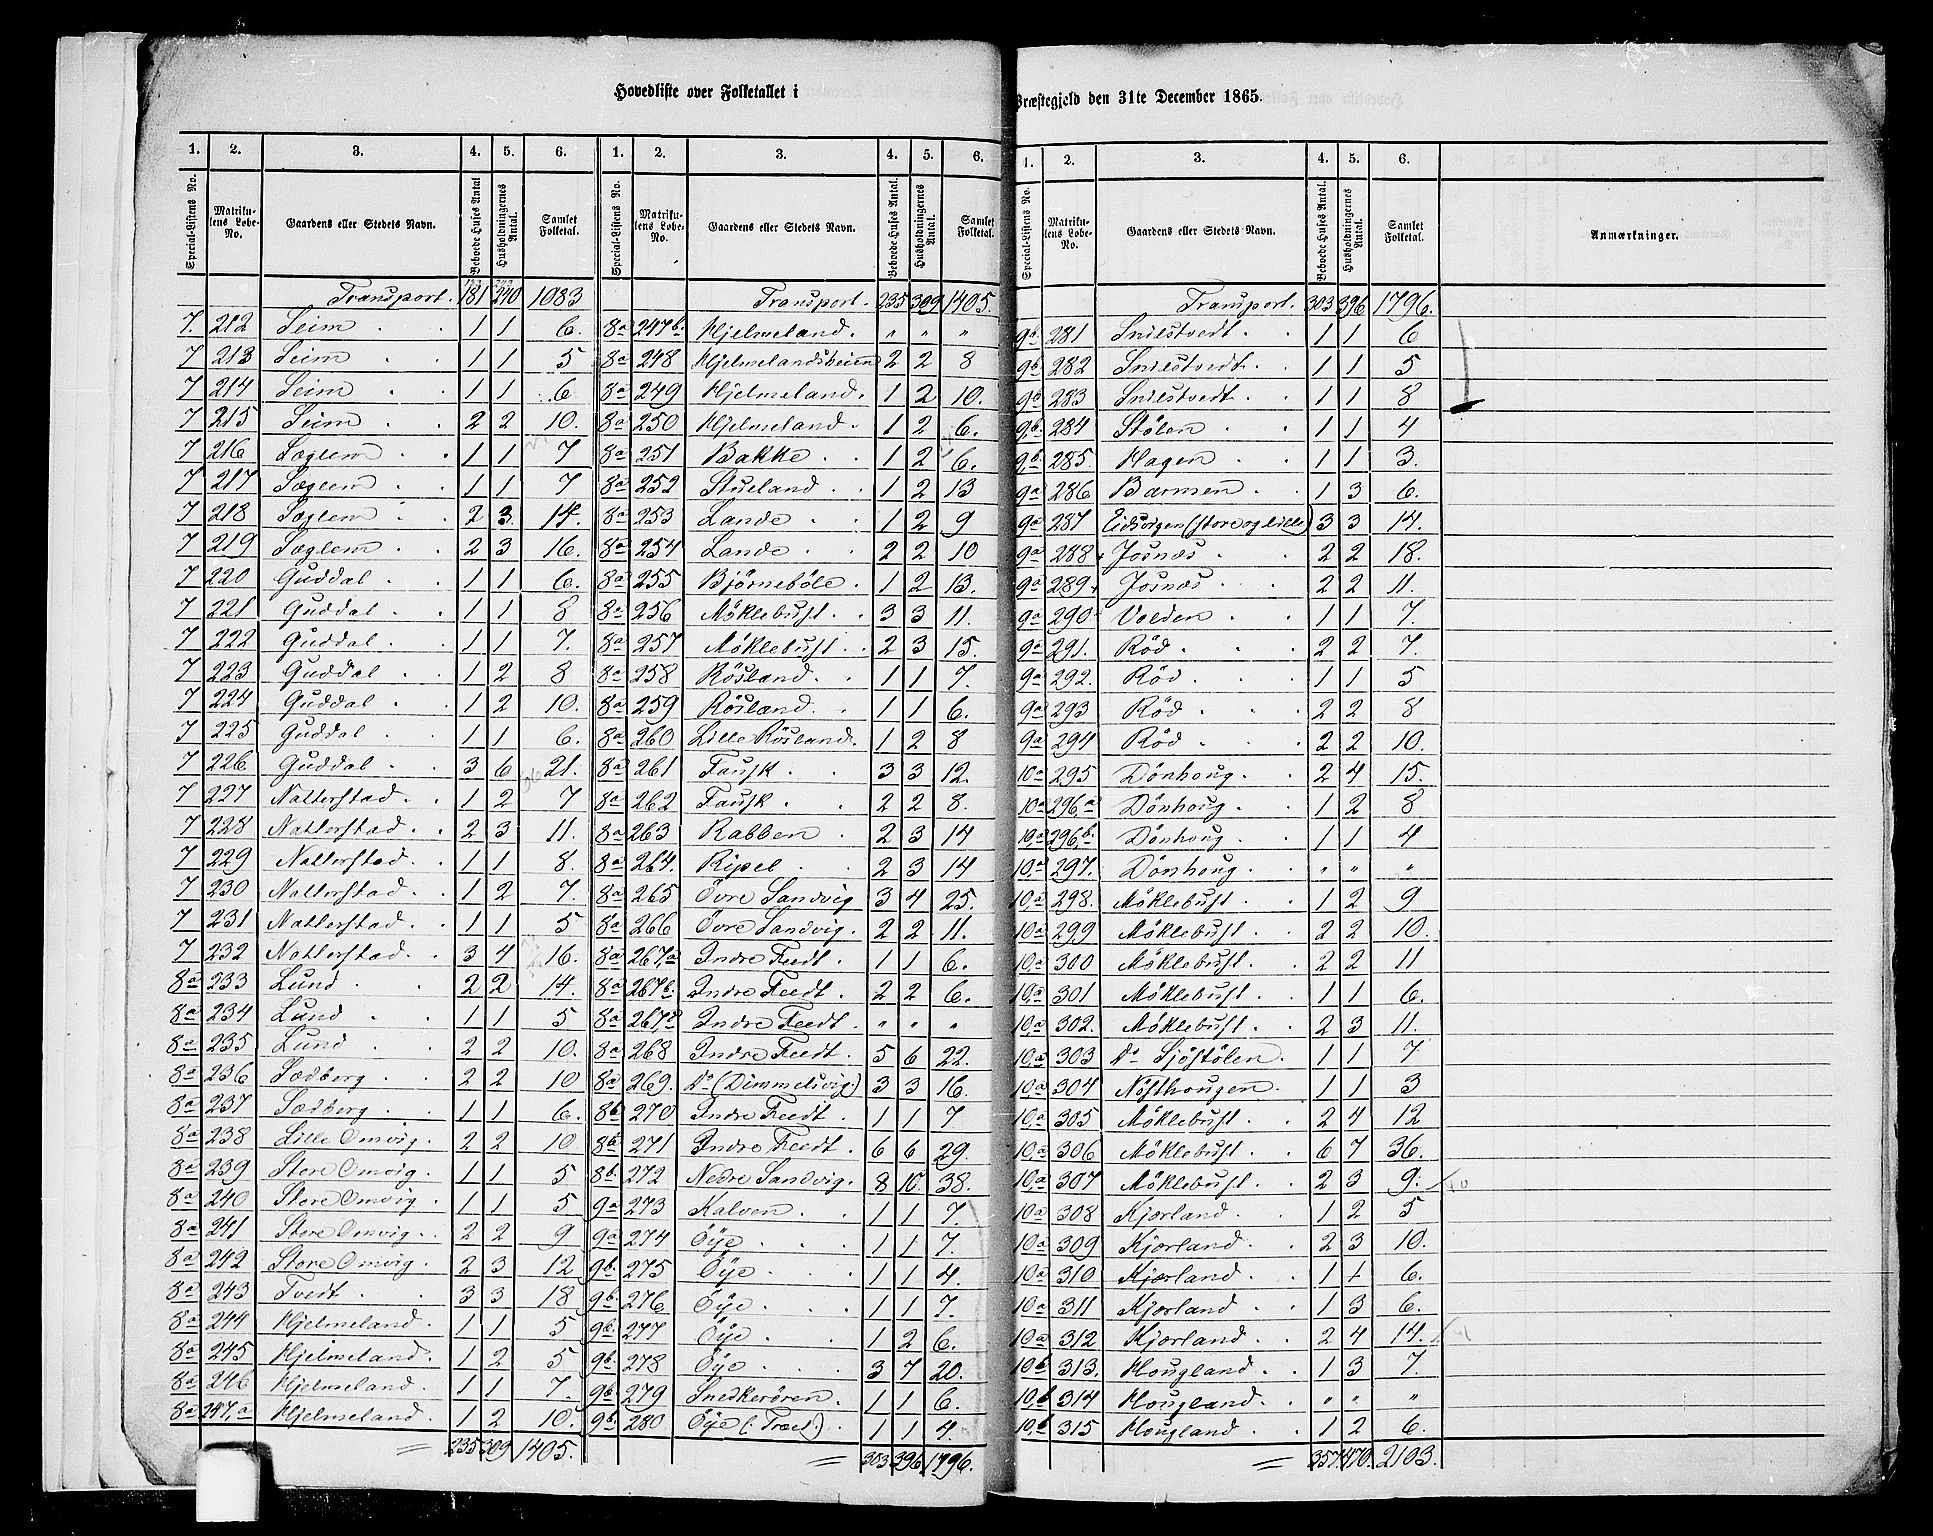 Hovedliste over Folketallet i Præstegjeld den 31te December 1865.
1. 2. 3. 4. 5. 6.
Special-Listens No. Matrikulens Løbe-No. Gaardens eller Stedets Navn. Beboede Huses Antal Husholdningernes Antal. Samlet Folketal.
Transport. 181 240 1083
7. 212 Seim 1 1 6.
7 213 Seim 1 1 5
7 214 Seim 1 1 6
7 215 Seim 2 2 10.
7 216 Sæglem 1 1 7
7 217 Sæglem 1 1 7
7 218 Sæglem 2 3 14.
7 219 Sæglem 2 3 16.
7 220 Guddal 1 1 6.
7 221 Guddal 1 1 8
7 222 Guddal 1 1 7.
7 223 Guddal 1 2 8
7 224 Guddal 1 2 10.
7 225 Guddal 1 1 6.
7 226 Guddal 3 6 21.
7 227 Natterstad 1 2 7
7 228 Natterstad 2 3 11.
7 229 Natterstad 1 1 8.
7 230 Natterstad 1 2 7.
7 231 Natterstad 1 1 5
7 232 Natterstad 3 4 16.
8a 233 Lund 2 2 14.
8a 234 Lund 1 1 5
8a 235 Lund 2 2 10.
8a 236 Sædberg 2 2 10
8a 237 Sædberg 1 1 6.
8a 238 Lille Omvig. 2 2 10.
8a 239 Store Omvig. 1 1 5
8a 240 Store Omvig 1 1 5
8a 241 Store Omvig 2 2 9
8a 242 Store Omvig. 2 3 12
8a 243 Tvedt 3 3 18
8a 244 Hjelmeland 1 1 5
8a 245 Hjelmeland. 1 2 5
8a 246 Hjelmeland. 1 1 7.
8a 247,a Hjelmeland. 1 2 10.
= 235 309 1405.
1. 2. 3. 4. 5. 6.
Special-Listens No. Matrikulens Løbe-No. Gaardens eller Stedets Navn. Beboede Huses Antal Husholdningernes Antal. Samlet Folketal.
Transport. 235 309 1405.
8a 247b. Hjelmeland. " " "
8a 248 Hjelmelandsbeien 2 2 8
8a 249 Hjelmeland. 1 2 10.
8a 250 Hjelmeland. 1 2 6.
8a 251 Bakke 1 2 6.
8a 252 Stueland 1 2 13
8a 253 Lande 1 2 9
8a 254 Lande 2 2 10
8a 255 Bjørneböle. 1 2 13.
8a 256 Möklebust 3 3 11.
8a 257 Möklebust 2 3 15.
8a 258 Rösland. 1 1 7.
8a 259 Rösland. 1 1 6.
8a 260 Lille Rösland. 1 2 8
8a 261 Fausk 3 3 12.
8a 262 Fausk 2 2 8.
8a 263 Rabben 2 3 14
8a 264. Ripel 2 3 14
8a 265 Övre Sandvig 3 4 25.
8a 266 Övre Sandvig. 2 2 11.
8a 267,a Indre Feedt. 1 1 6.
8a 267b. Indre Feedt. 2 2 6.
8a 267,d Indre Feedt. " " "
8a 268 Indre Feedt. 5 6 22.
8a 269. Do (Dimmelsvig) 3 3 16.
8b 270 Indre Feedt 1 1 7.
8b. 271 Indre Feedt. 6 6 29.
8b. 272 Nedre Sandvig. 8 10. 38.
9a 273 Kalven 1 1 7.
9a 274 Öye 1 1 7.
9b. 275 Öye 1 1 4.
9b. 276 Öye 1 1 7.
9b. 277 Öye 1 2 6.
9b. 278 Öye 3 7 20.
9b. 279 Snedkerören 1 1 6.
9b. 280 Öye (: Træet) 1 1 4.
= 303 396 1796.
1. 2. 3. 4. 5. 6.
Special-Listens No. Matrikulens Løbe-No. Gaardens eller Stedets Navn. Beboede Huses Antal. Husholdningernes Antal. Samlet Folketal. Anmærkninger.
Transport. 303 396 1796.
9b. 281 Snilstvedt. 1 1 6
9b 282 Snilstvedt. 1 1 5
9b 283 Snilstvedt. 1 1 8
9,b. 284 Stölen 1 1 4
9,b. 285. Hagen 1 1 3.
9a 286. Barmen 1 3 6.
9a 287 Eidsvigen (store og lille) 3 3 14.
9a 288 Josnæs 2 2 18.
9a 289 Josnæs 2 2 11.
9a 290 Volden 1 1 7.
9a 291. Röd 2 2 7.
9a 292. Röd 1 1 5
9a 293 Röd 2 2 8
9a 294 Röd 2 2 10.
10a 295 Dönhoug. 2 4 15.
10a 296,a Dönhoug 1 2 8
10a 296,b. Dönhoug 1 1 4
10,a 297. Dönhoug. " " "
10,a 298. Möklebust 1 2 9
10a 299 Möklebust. 2 2 10.
10,a 300 Möklebust. 2 2 11
10,a 301 Möklebust. 1 1 6.
10,a 302. Möklebust. 2 3 11.
10,a 303 Do Sjöstölen. 1 1 7
10,a 304 Nisthougen. 1 1 3
10,a 305 Möklebust. 2 4 12
10,a 306 Möklebust. 6 7 36.
10,a 307 Möklebust. 2 3 9. 10
10a 308 Kjærland. 1 2 5
10a 309 Kjærland. 2 3 10.
10a 310 Kjærland. 1 1 6.
10a 311 Kjærland. 1 3 6.
10a 312. Kjærland. 2 4 14.
10b 313. Hougland 1 3 7.
10,b 314 Hougland " " "
10,b 315 Hougland 1 2 6.
= 357. 470. 2103.